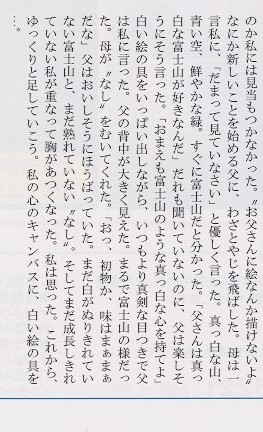 のか私には見当もつかなかった。〝お父さんに絵なんか描けないよ〟
なにか新しいことを始める父に、わざとやじを飛ばした。母は一
言私に、「だまって見ていなさい」と優しく言った。真っ白な山、
青い空、鮮やかな緑。すぐに富士山だと分かった。「父さんは真っ
白な富士山が好きなんだ」だれも聞いていないのに、父は楽しそ
うにそう言った。「おまえも富士山のような真っ白な心を持てよ」
白い絵の具をいっぱい出しながら、いつもより真剣な目つきで父
は私に言った。父の背中が大きく見えた。まるで富士山の様だっ
た。母が〝なし〟をむいてくれた。「おっ、初物か、味はまぁまぁ
だな」父はおいしそうにほうばっていた。まだ白がぬりきれてい
ない富士山と、まだ熟れていない〝なし〟。そしてまだ成長しきれ
ていない私が重なって胸があつくなった。私は思った。これから、
ゆっくりと足していこう。私の心のキャンバスに、白い絵の具を
…。